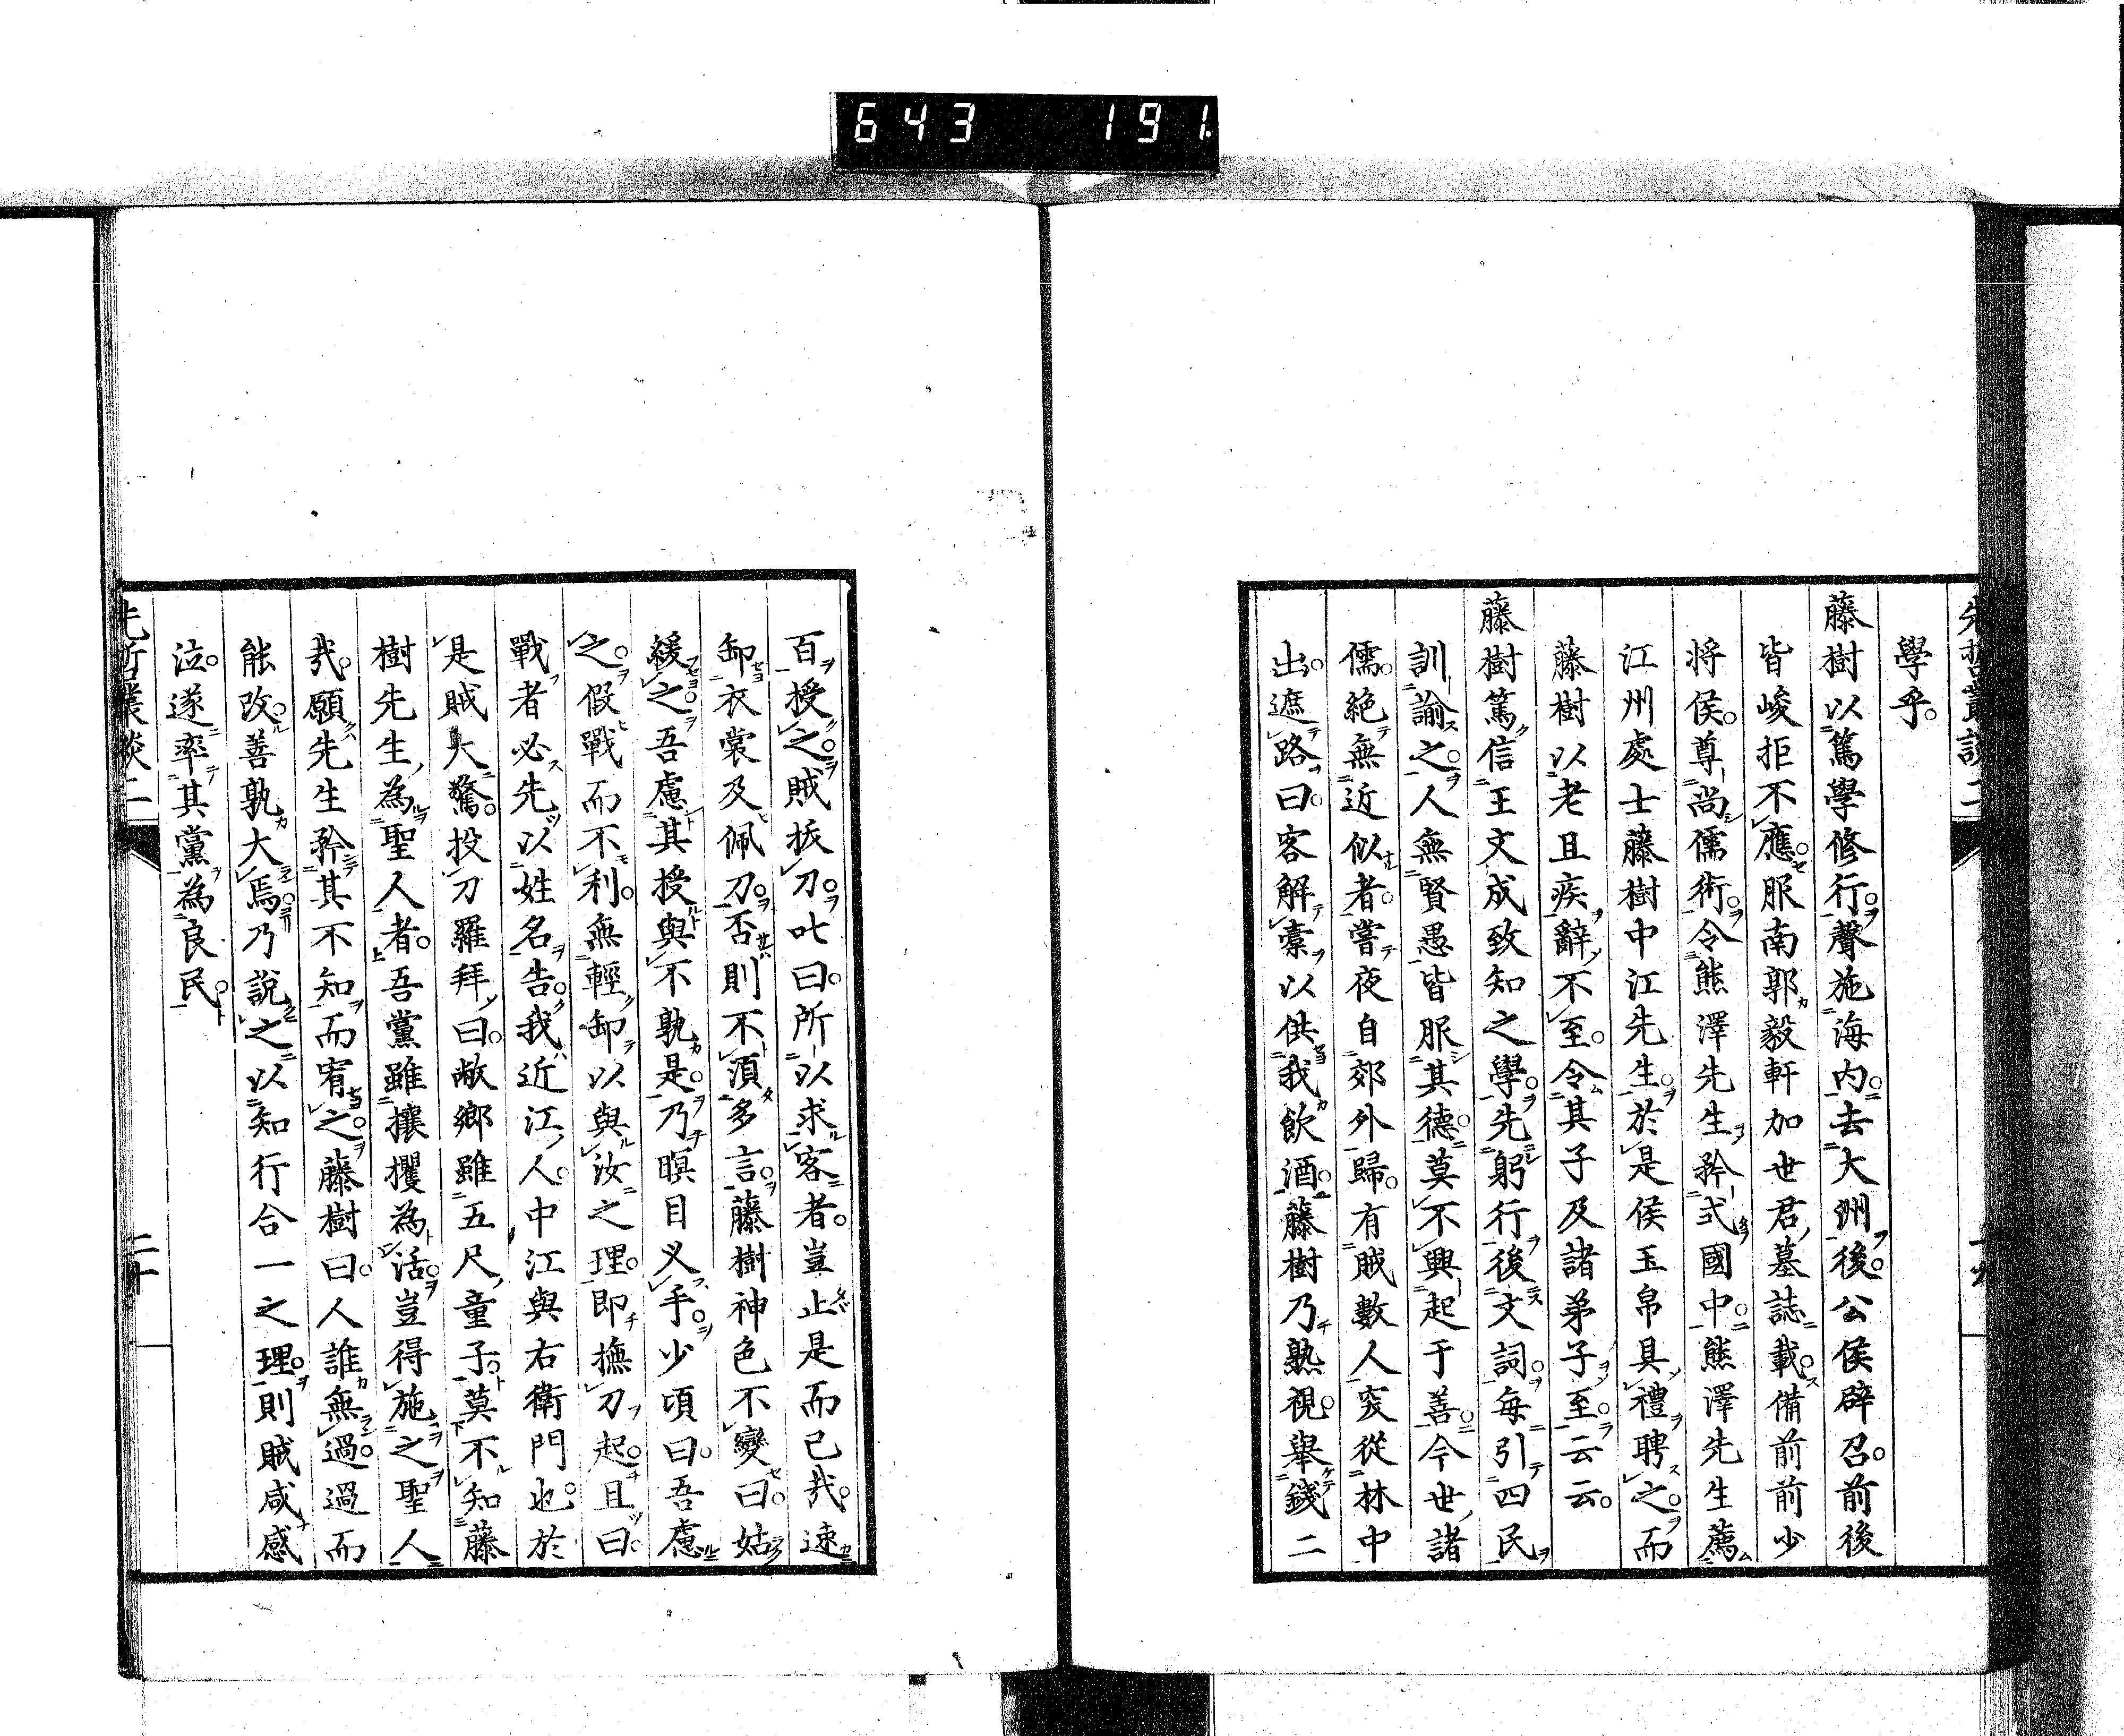 643 191
先哲叢談二
學乎。
藤樹以篤學修行。聲施海內。去大洲後。公侯辟召。前後
皆峻拒不應。服南郭毅軒加世君墓誌載。備前前少
将侯。尊尚儒術。令熊澤先生矜式國中。熊澤先生薦
江州處士藤樹中江先生。於是侯玉帛具禮聘之。而
藤樹以老且疾辭不至。令其子及諸弟子至。云云。
藤樹篤信王文成致知之學。先躬行後文詞。每引四民
訓諭之。人無賢愚皆服其德。莫不興起于善。今世諸
儒。絶無近似者。嘗夜自郊外歸。有賊數人突從林中
出。遮路曰。客解橐以供我飲酒。藤樹乃熟視。舉錢二
百授之。賊拔刀。叱曰。所以求客者。豈止是而已哉。速
卸衣裳及佩刀。否則不須多言。藤樹神色不變曰。姑
緩之。吾慮其授與不孰是。乃瞑目叉手。少頃曰。吾慮
之。假戰而不利。無輕卸以與汝之理。即撫刀起。且曰。
戰者必先以姓名告。我近江人。中江與右衛門也。於
是賊大驚。投刀羅拜曰。敝鄉雖五尺童子。莫不知藤
樹先生為聖人者。吾黨雖攘攫為活。豈得施之聖人
哉。願先生矜其不知而宥之。藤樹曰。人誰無過。過而
能改。善孰大焉。乃說之以知行合一之理。則賊咸感
泣。遂率其黨為良民。
先哲叢談二
二十